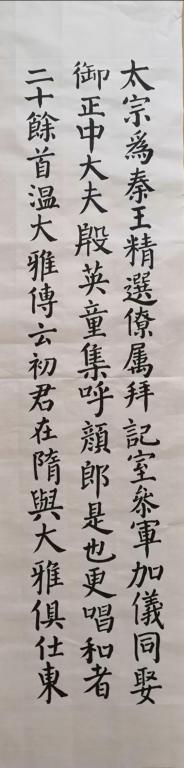 太宗為秦王精選僚属拜記室叅軍加儀同娶
御正中大夫殷英童集呼顔郎是也更唱和者
二十餘首溫大雅傳云初君在隋與大雅俱仕東